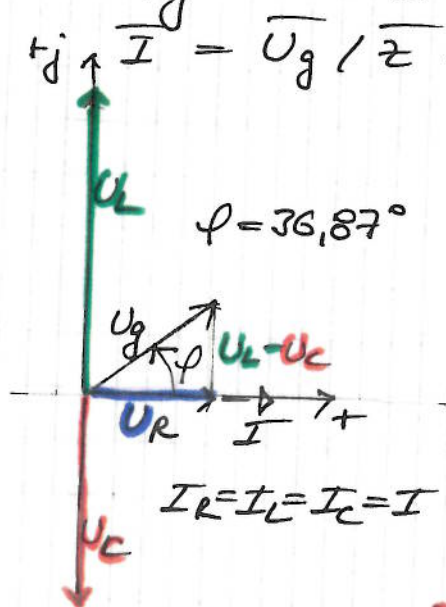 +j I = Ug / Z
UL
φ = 36,87°
Ug
φ
UL-UC
UR
I
+
IR=IL=IC=I
UC